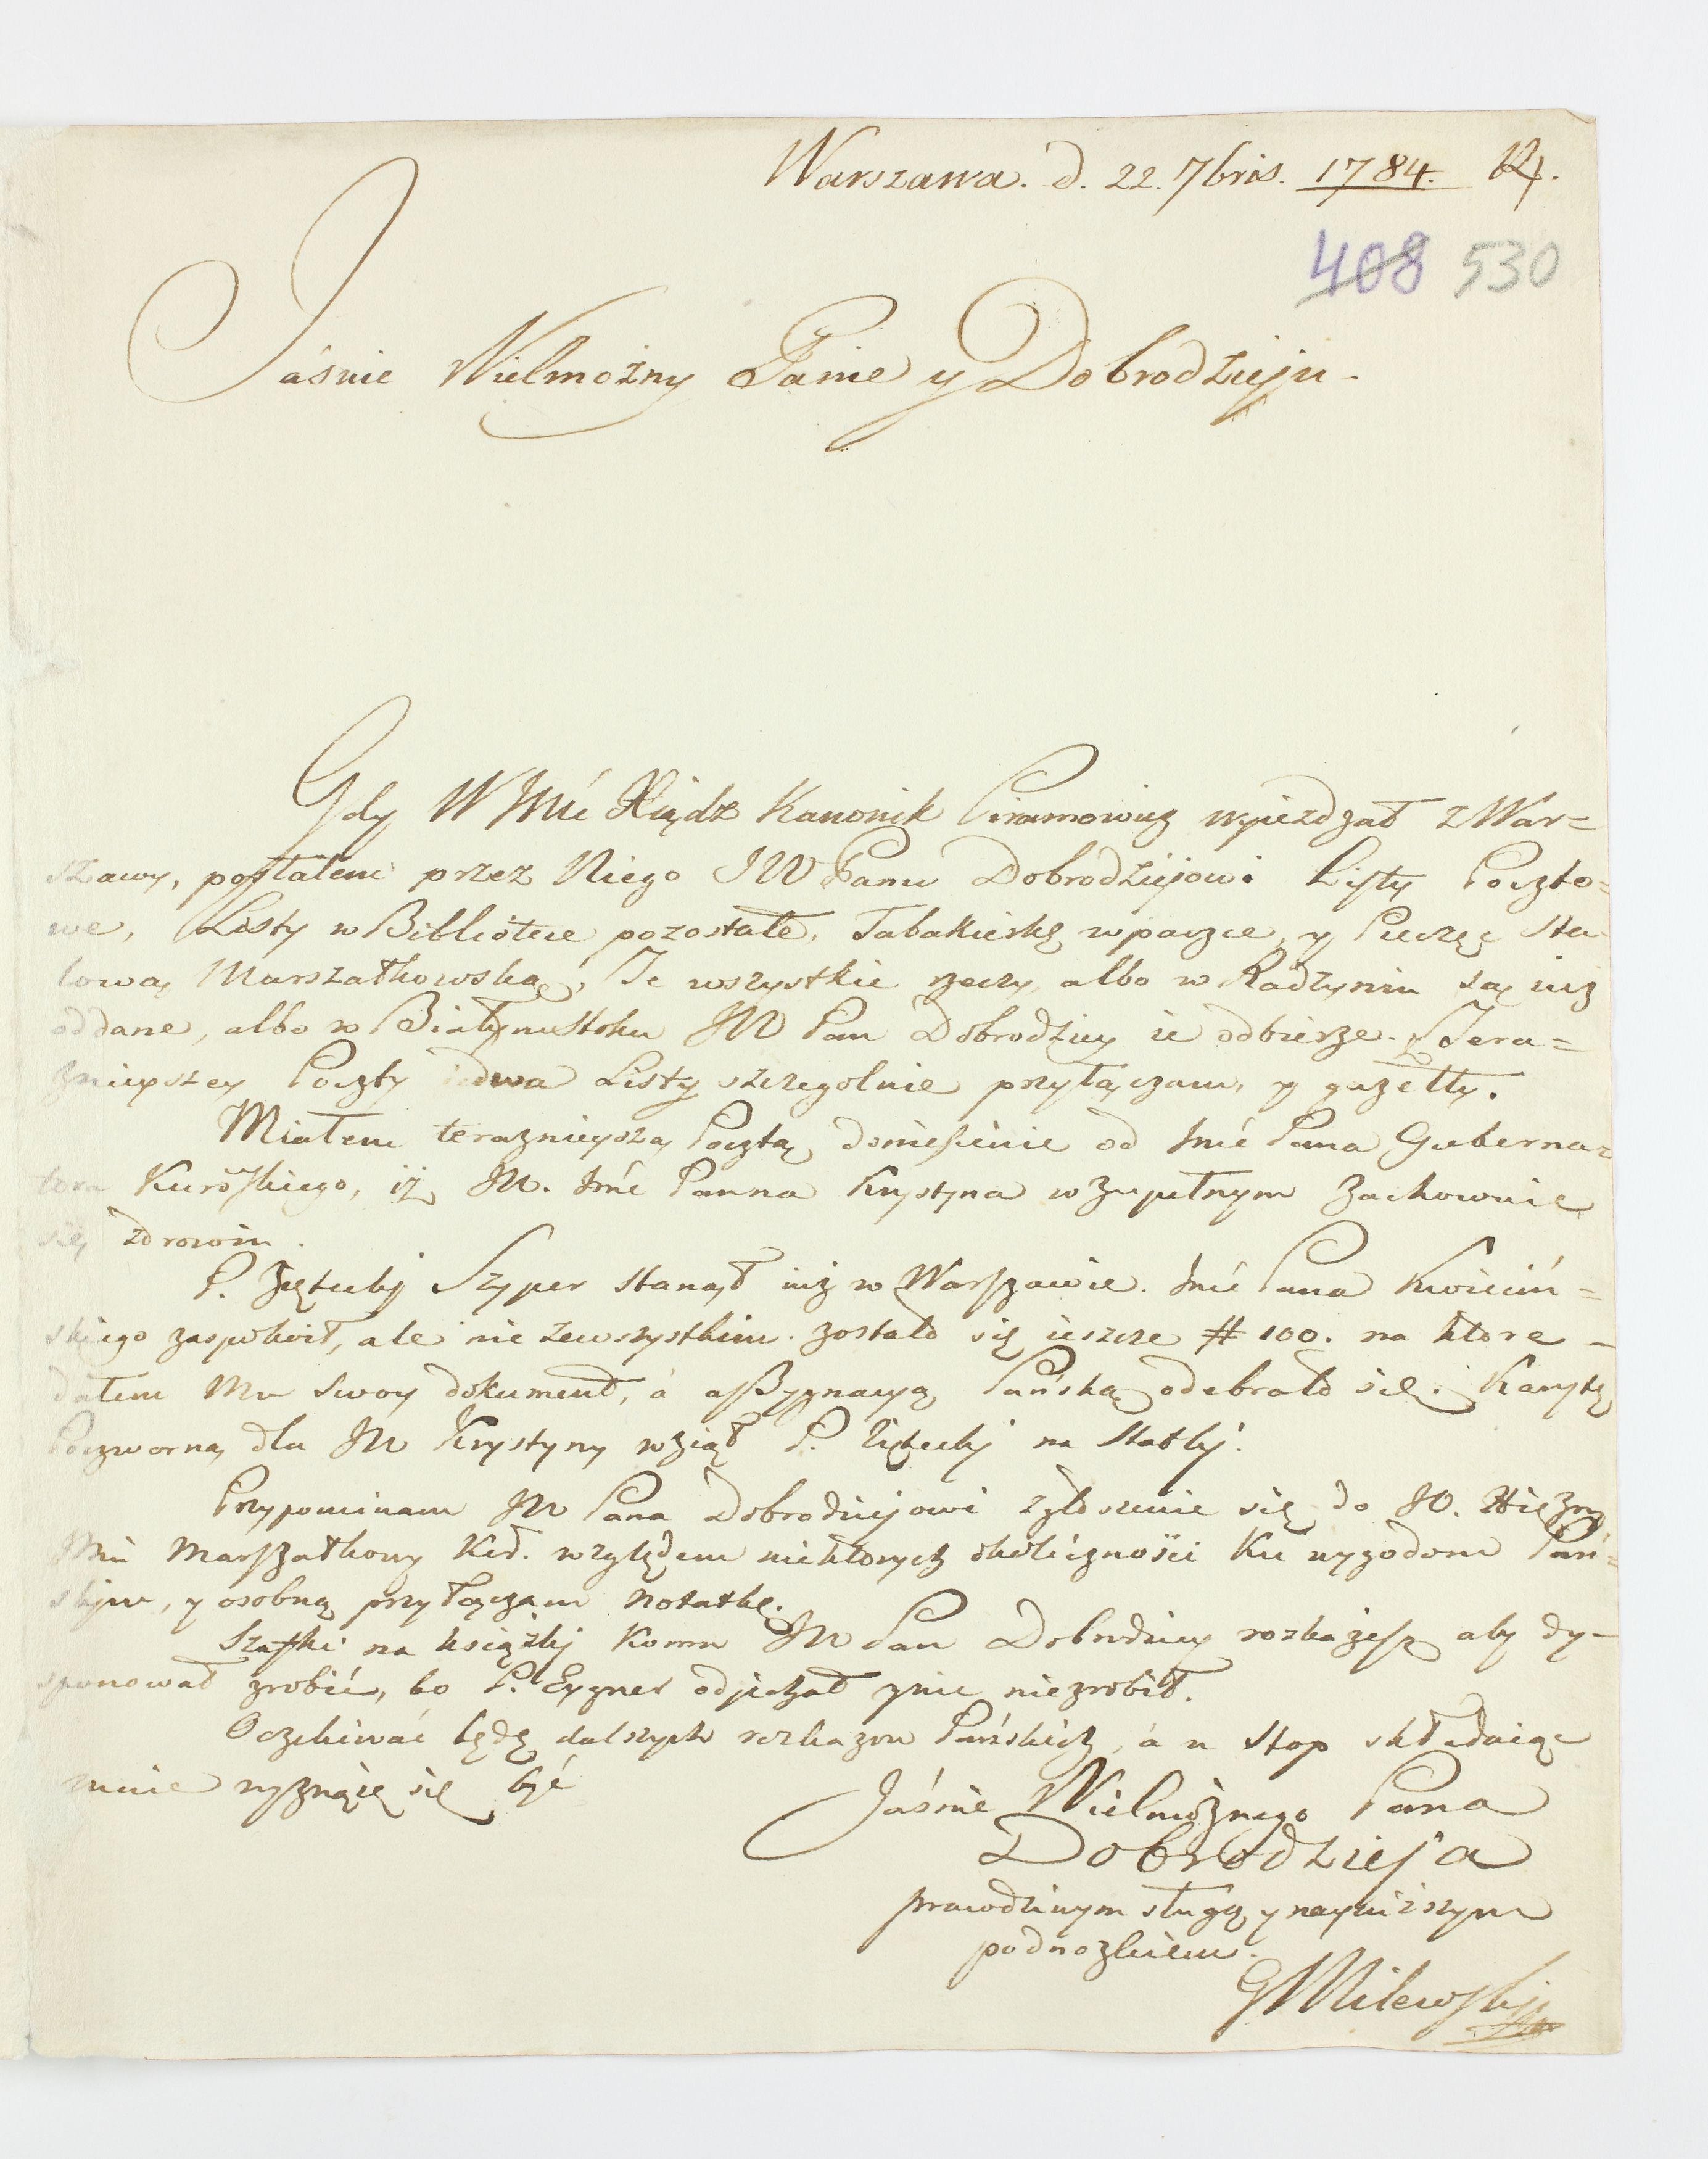 Warszawa. d. 22. 7bris. 1784.
408 530
Jáśnie Wielmożny Panie y Dobrodzieju.
Gdy WJMć Xiądz Kanonik Piramowicz wyieżdzał z War=
szawy, posłałem przez Niego JW Panu Dobrodziejowi Listy Poczto=
we, Listy w Bibliotece pozostałe, Tabakierkę w paczce, y Pieczęć sta
lową Marszałkowską, Te wszystkie rzeczy, albo w Radzyniu są iuz
oddane, albo w Białymstoku JW Pan Dobrodziey ie odbierze. Z Tera=
znieyszey Poczty dwa Listy szczegolnie przyłączam, y gazetty.
Miałem teraznieyszą Pocztą doniesienie od Jmć Pana Guberna=
tora Kurowskiego, iż JW. Jmć Panna Krystyna w zupełnym zachowuie
się zdrowiu.
P. Zętecki Szyper stanął iuż w Warszawie. Jmć Pana Kwiciń=
skiego zaspokoił, ale nie zewszystkim. zostało się ieszcze # 100. na ktore
dałem Mu Swoy dokument, á assygnacyą Pańską odebrało się. Karytę
Poczworną dla JW Krystyny wziął P. Zętecki na Statki.
Przypominam JW Pana Dobrodziejowi zgłoszenie się do JO. Xiężny
Jmci Marszałkowy Kor. względem niektorych okoliczności Ku wygodom Pań=
skim, y osobną przyłączam notatkę.
Szafki na książki Komu JW Pan Dobrodziey rozkażesz aby dy=
sponował zrobić, bo P. Eygner odjechał y nic niezrobił.
Oczekiwać będę dalszych rozkazow Pańskich, á u stop składaiąc
mnie wyznaię się być
Jáśnie Wielmożnego Pana
Dobrodzieja
prawdziwym sługą y nayniższym
podnozkiem.
G Milewski